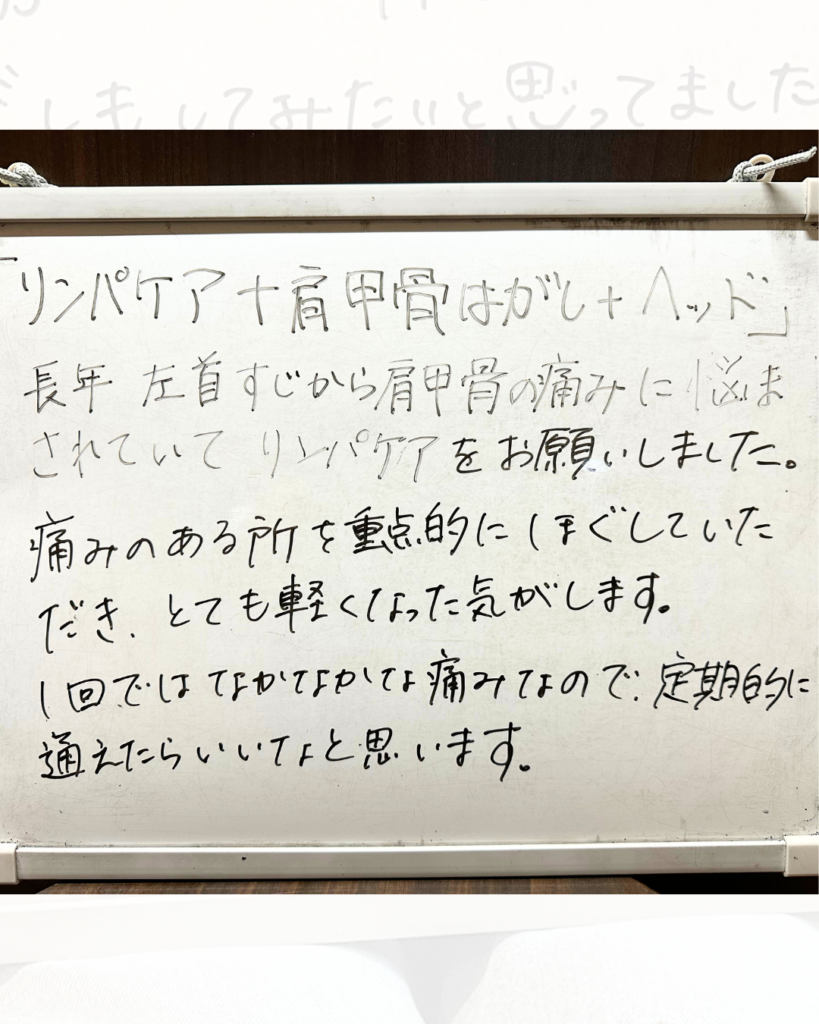 しもしてみたいと思ってました
「リンパケア+肩甲骨はがし+ヘッド」
長年 左首すじから肩甲骨の痛みに悩ま
されていて リンパケアをお願いしました。
痛みのある所を重点的にほぐしていた
だき、とても軽くなった気がします。
1回ではなかなかな痛みなので、定期的に
通えたらいいなと思います。